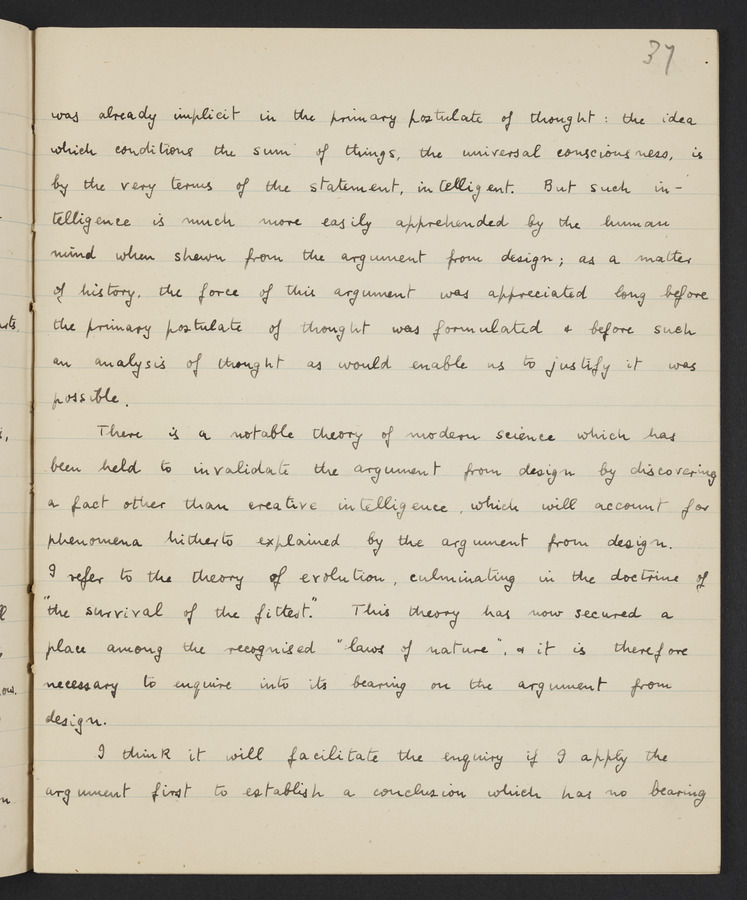 37
was already implicit in the primary postulate of thought : the idea
which conditions the sum of things, the universal consciousness, is
by the very terms of the statement, intelligent. But such in-
telligence is much more easily apprehended by the human
mind when shewn from the argument from design; as a matter
of history, the force of this argument was appreciated long before
the primary postulate of thought was formulated & before such
an analysis of thought as would enable us to justify it was
possible.
There is a notable theory of modern science which has
been held to invalidate the argument from design by discovering
a fact other than creative intelligence, which will account for
phenomena hitherto explained by the argument from design.
I refer to the theory of evolution, culminating in the doctrine of
"the survival of the fittest." This theory has now secured a
place among the recognised "laws of nature", & it is therefore
necessary to enquire into its bearing on the argument from
design.
I think it will facilitate the enquiry if I apply the
argument first to establish a conclusion which has no bearing